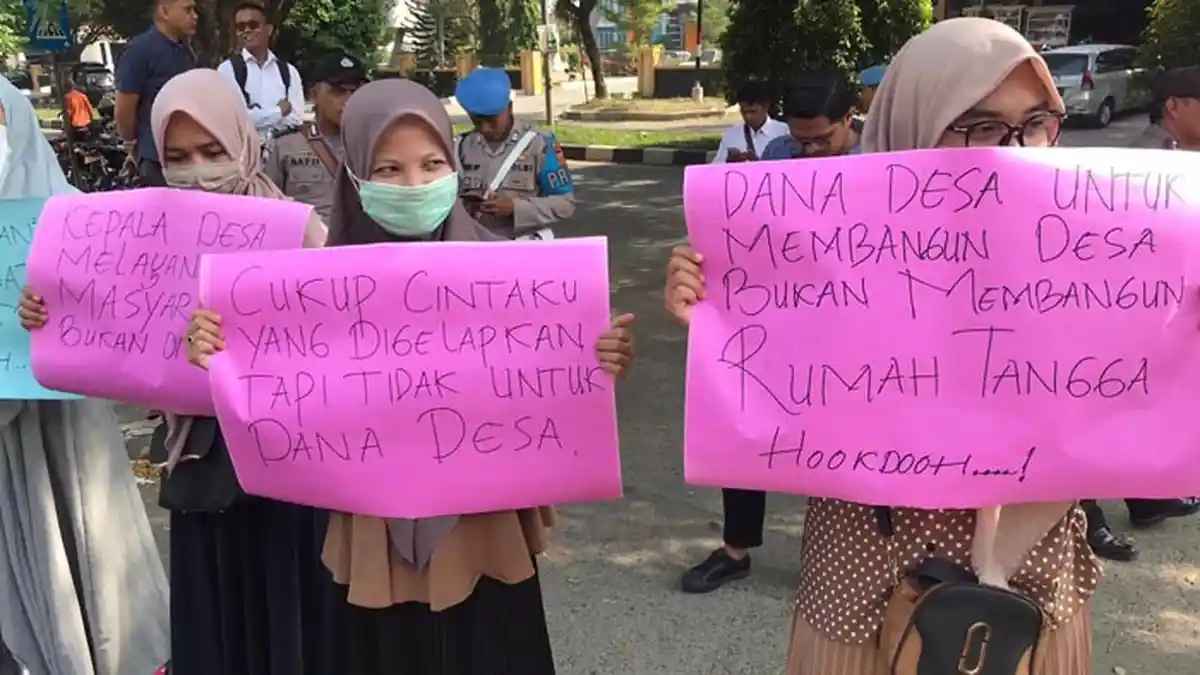 KEPALA DESA
MELAYANI
MASYAR
BUKAN DI
CUKUP CINTAKU
YANG DIGELAPKAN
TAPI TIDAK UNTUK
DANA DESA.
DANA DESA UNTUK
MEMBANGUN DESA
BUKAN MEMBANGUN
RUMAH TANGGA
HOOKDOOH....!